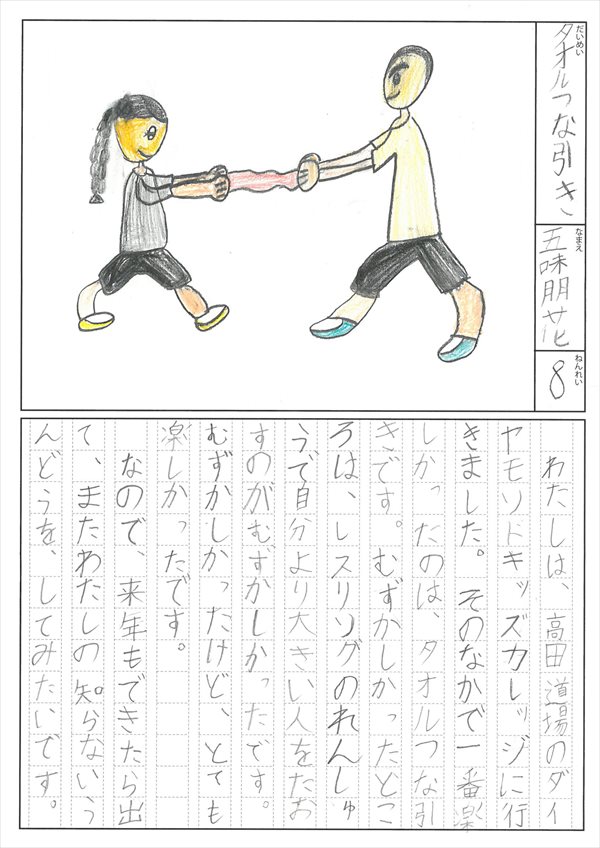 だいめい
タオルつな引き
なまえ
五味朋花
ねんれい
8
わたしは、高田道場のダイ
ヤモンドキッズカレッジに行
きました。そのなかで一番楽
しかったのは、タオルつな引
きです。むずかしかったとこ
ろは、レスリングのれんしゅ
うで自分より大きい人をたお
すのがむずかしかったです。
むずかしかったけど、とても
楽しかったです。
なので、来年もできたら出
て、またわたしの知らないう
んどうを、してみたいです。